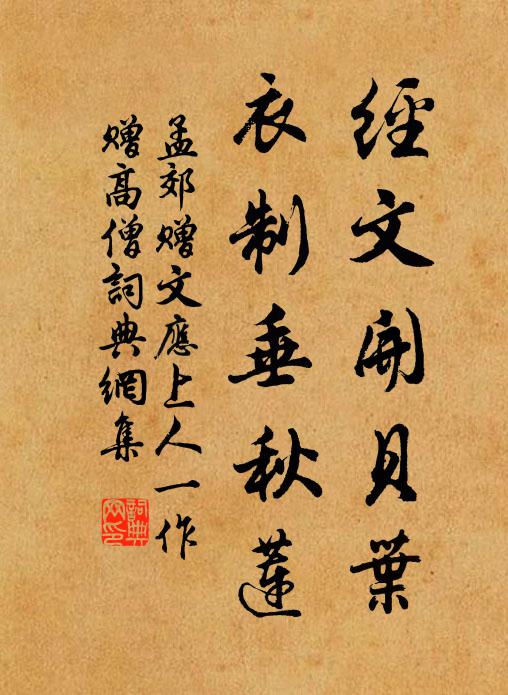 經文開貝葉
衣制垂秋蓮
孟郊贈文應上人一作
贈高僧詞典網集
詞典網印